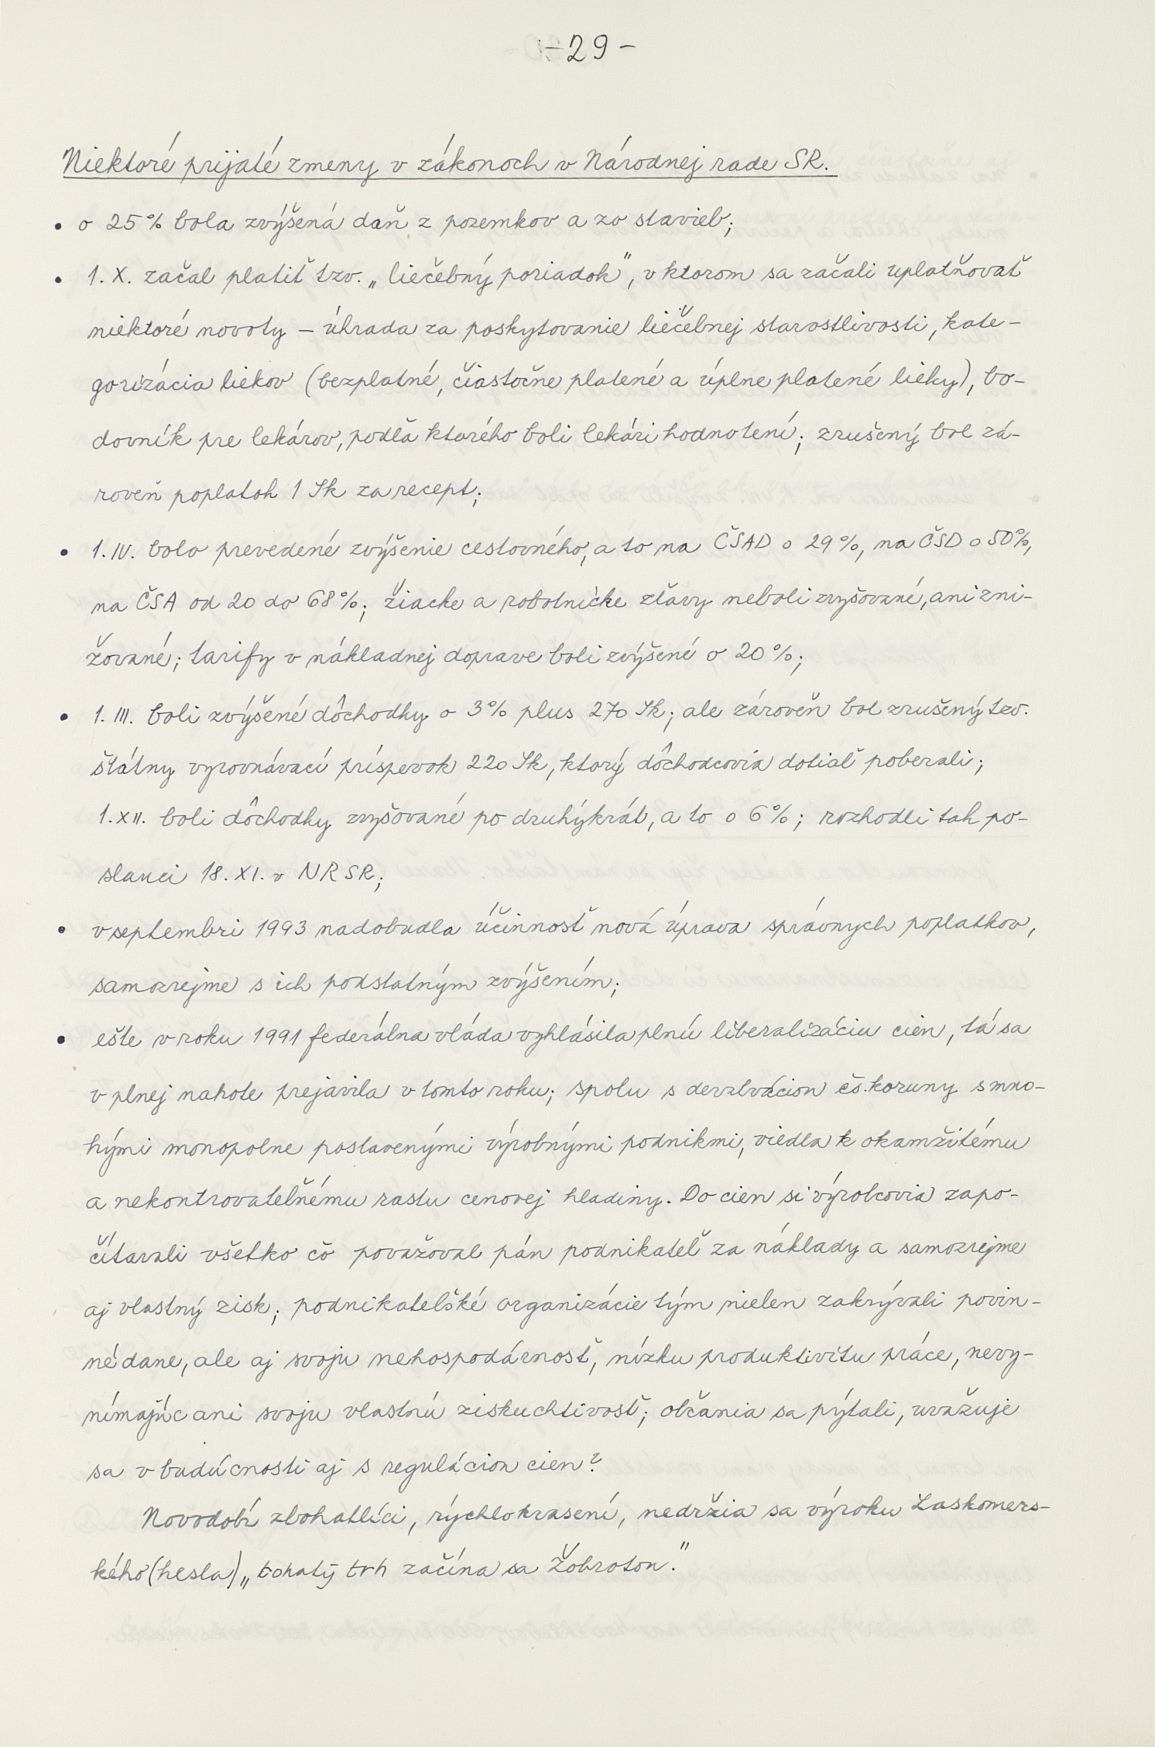 -29-
Niektoré prijaté zmeny v zákonoch v Národnej rade SR.
• o 25% bola zvýšená daň z pozemkov a zo stavieb;
• 1. X. začal platiť tzv. „liečebný poriadok", v ktorom sa začali uplatňovať
niektoré novoty – úhrada za poskytovanie liečebnej starostlivosti, kate-
gorizácia liekov (bezplatné, čiastočne platené a úplne platené lieky), bo-
dovník pre lekárov, podľa ktorého boli lekári hodnotení; zrušený bol zá-
roveň poplatok 1 Sk za recept;
• 1. IV. bolo prevedené zvýšenie cestovného, a to na ČSAD o 29%, na ČSD o 50%,
na ČSA od 20 do 68%; žiacke a robotnícke zľavy neboli zvyšované, ani zni-
žované; tarify v nákladnej doprave boli zvýšené o 20%;
• 1. III. boli zvýšené dôchodky o 3% plus 270 Sk; ale zároveň bol zrušený tzv.
štátny vyrovnávací príspevok 220 Sk, ktorý dôchodcovia dotiaľ poberali;
1. XII. boli dôchodky zvyšované po druhýkrát, a to o 6%; rozhodli tak po-
slanci 18. XI. v NR SR;
• v septembri 1993 nadobudla účinnosť nová úprava správnych poplatkov,
samozrejme s ich podstatným zvýšením;
• ešte v roku 1991 federálna vláda vyhlásila plnú liberalizáciu cien, tá sa
v plnej nahote prejavila v tomto roku; spolu s devalváciou čs. koruny s mno-
hými monopolne postavenými výrobnými podnikmi, viedla k okamžitému
a nekontrovateľnému rastu cenovej hladiny. Do cien si výrobcovia zapo-
čítavali všetko čo považoval pán podnikateľ za náklady a samozrejme
aj vlastný zisk; podnikateľské organizácie tým nielen zakrývali povin-
né dane, ale aj svoju nehospodárnosť, nízku produktivitu práce, nevy-
nímajúc ani svoju vlastnú ziskuchtivosť; občania sa pýtali, uvažuje
sa v budúcnosti aj s reguláciou cien?
Novodobí zbohatlíci, rýchlokvasení, nedržia sa výroku Laskomers-
kého (hesla) „bohatý trh začína sa žobrotou."